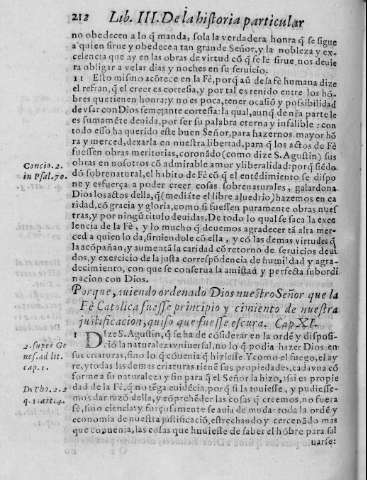 212 Lib. III. De la historia particular
no obedecen a lo q̃ manda, sola la verdadera honra q̃ se sigue
a quien sirue y obedece a tan grande Señor, y la nobleza y ex-
celencia que ay en las obras de virtud cõ q̃ se le sirue, nos deuie
ra obligar a velar dias y noches en su seruicio.
11 Esto mismo acõtece en la Fè, porq̃ aũ de la fè humana dize
el refran, q̃ el creer es cortesia, y por tal es tenido entre los hõ-
bres que tienen honra, y no es poca, tener ocasiõ y possibilidad
de vsar con Dios semejante cortesia: la qual, aunq̃ de nãa parte le
es sumamẽte deuida, por ser su palabra eterna y infalible: con
todo esso ha querido este buen Señor, para hazernos mayor hõ
ra y merced, dexarla en nuestra libertad, para q̃ los actos de Fè
fuessen obras meritorias, coronãdo (como dize S. Agustin) sus
Concio. 2. in Psal. 70.
obras en nosotros cõ admirable amor y liberalidad: porq̃ siẽdo
dõ sobrenatural, el habito de Fè cõ q̃ el entẽdimiento se dispo
ne y esfuerça a poder creer cosas sobrenaturales, galardona
Dios los actos della, q̃ (mediãte el libre aluedrio) hazemos en ca
ridad, cõ gracia y gloria, como si fuessen puramente obras nues
tras, y por ningũ titulo deuidas. De todo lo qual se saca la exce
lencia de la Fè, y lo mucho q̃ deuemos agradecer tã alta mer
ced a quien lo da, siruiendole cõ ella, y cõ las demas virtudes q̃
la acõpañan, y aumẽta la caridad cõ retorno de seruicios deui
dos, y exercicio de la justa correspõdencia de humildad y agra-
decimiento, con que se conserua la amistad y perfecta subordi
nacion con Dios.
Porque, auiendo ordenado Dios nuestro Señor que la
Fè Catolica fuesse principio y cimiento de nuestra
justificacion, quiso que fuesse escura. Cap. XI.
1 Dize S. Agustin, q̃ se ha de considerar en la ordẽ y disposi-
2. super Genes. ad lit. cap. 1.
ciõ la naturaleza vniuersal, no lo q̃ podia hazer Dios en
sus criaturas, sino lo q̃ cõuenia q̃ hiziesse. Y como el fuego, el ay
re, y todas las demas criaturas tiene sus propiedades, cada vna cõ
forme a su naturaleza y fin para q̃ el Señor la hizo, assi es propie
De Tho. 2. 2 q. 1. art. 4.
dad de la Fè, q̃ no tẽga euidẽcia, porq̃ si la tuuiesse, y pudiesse-
mos dar razõ della, y cõprehẽder las cosas q̃ creemos, no fuera
fè, sino ciencia: y forçosamente se auia de mudar toda la ordẽ y
economia de nuestra justificaciõ, estrechando y cercenãdo mas
que conuenia, las cosas que huuiesse de saber el hõbre para sal
uarse: